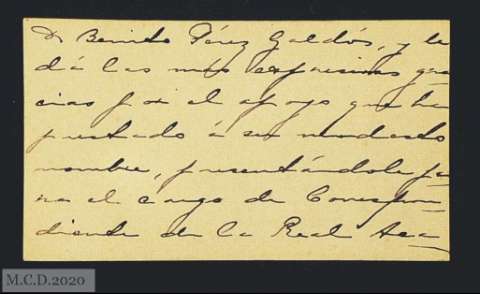 D Benito Pérez Galdós, y le
dá las más expresivas gra
cias por el apoyo que ha
prestado á su modesto
nombre, presentándole pa
ra el cargo de Correspon-
diente de la Real Aca-
M.C.D.2020